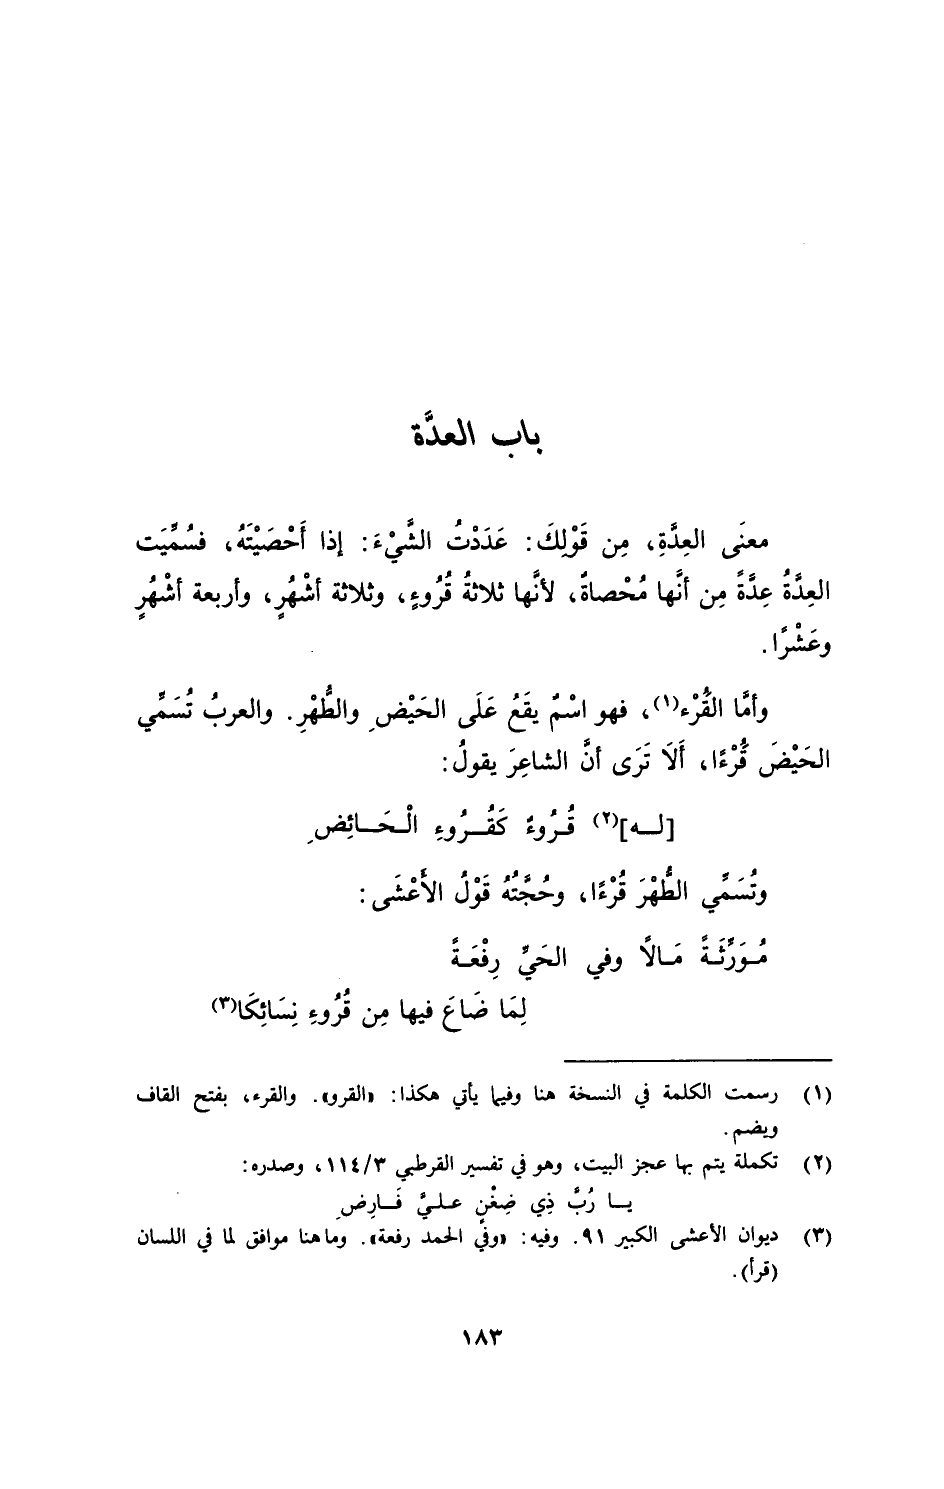 باب العدَّة
معنَى العِدَّةِ، مِن قَوْلِكَ: عَدَدْتُ الشَّيْءَ: إذا أَحْصَيْتَهُ، فسُمِّيَت
العِدَّةُ عِدَّةً مِن أنَّها مُحْصاةٌ، لأنَّها ثلاثةُ قُرُوءٍ، وثلاثة أشْهُرٍ، وأربعة أشْهُرٍ
وعَشْرًا.
وأمَّا القُرْء(١)، فهو اسْمٌ يقَعُ عَلَى الحَيْضِ والطُّهْرِ. والعربُ تُسَمِّي
الحَيْضَ قُرْءًا، أَلَا تَرَى أنَّ الشاعِرَ يقولُ:
[لـه](٢) قُـرُوءٌ كَقُـرُوءِ الْـحَـائِضِ
وتُسَمِّي الطُّهْرَ قُرْءًا، وحُجَّتُهُ قَوْلُ الأَعْشَى:
مُـوَرِّثَـةً مَـالًا وفي الحَيِّ رِفْعَـةً
لِمَا ضَاعَ فيها مِن قُرُوءِ نِسَائِكَا(٣)
(١) رسمت الكلمة في النسخة هنا وفيما يأتي هكذا: «القرو». والقرء، بفتح القاف
ويضم.
(٢) تكملة يتم بها عجز البيت، وهو في تفسير القرطبي ١١٤/٣، وصدره:
يـا رُبَّ ذِي ضِغْنٍ عـليَّ فَـارِضِ
(٣) ديوان الأعشى الكبير ٩١. وفيه: «وفي الحمد رفعة». وما هنا موافق لما في اللسان
(قرأ).
١٨٣